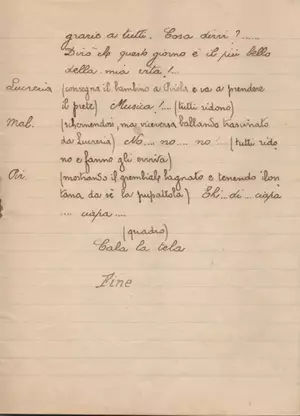 grazie a tutti. Cosa dirvi?......
Dirò che questo giorno è il più bello
della mia vita!...
Lucrezia (consegna il bambino a Ariola e va a prendere
il prete) Musica!... (tutti ridono)
Mal. (schernendosi, ma viceversa ballando trascinato
da Lucrezia) No.... no.... no! (tutti rido
no e fanno gli evviva)
(mostrando il grembiale bagnato e tenendo lon
tana da sè la pupattola) Ehi...di
....
(quadro)
Cala la tela
Fine